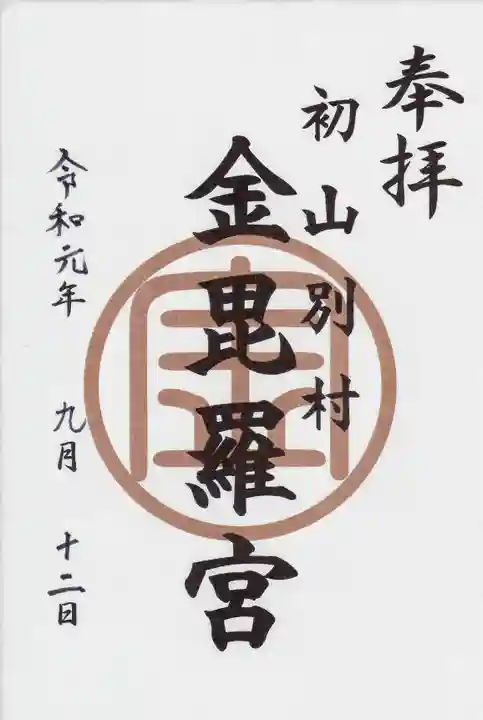 奉拝
初山別村
金毘羅宮
令和元年 九月 十二日